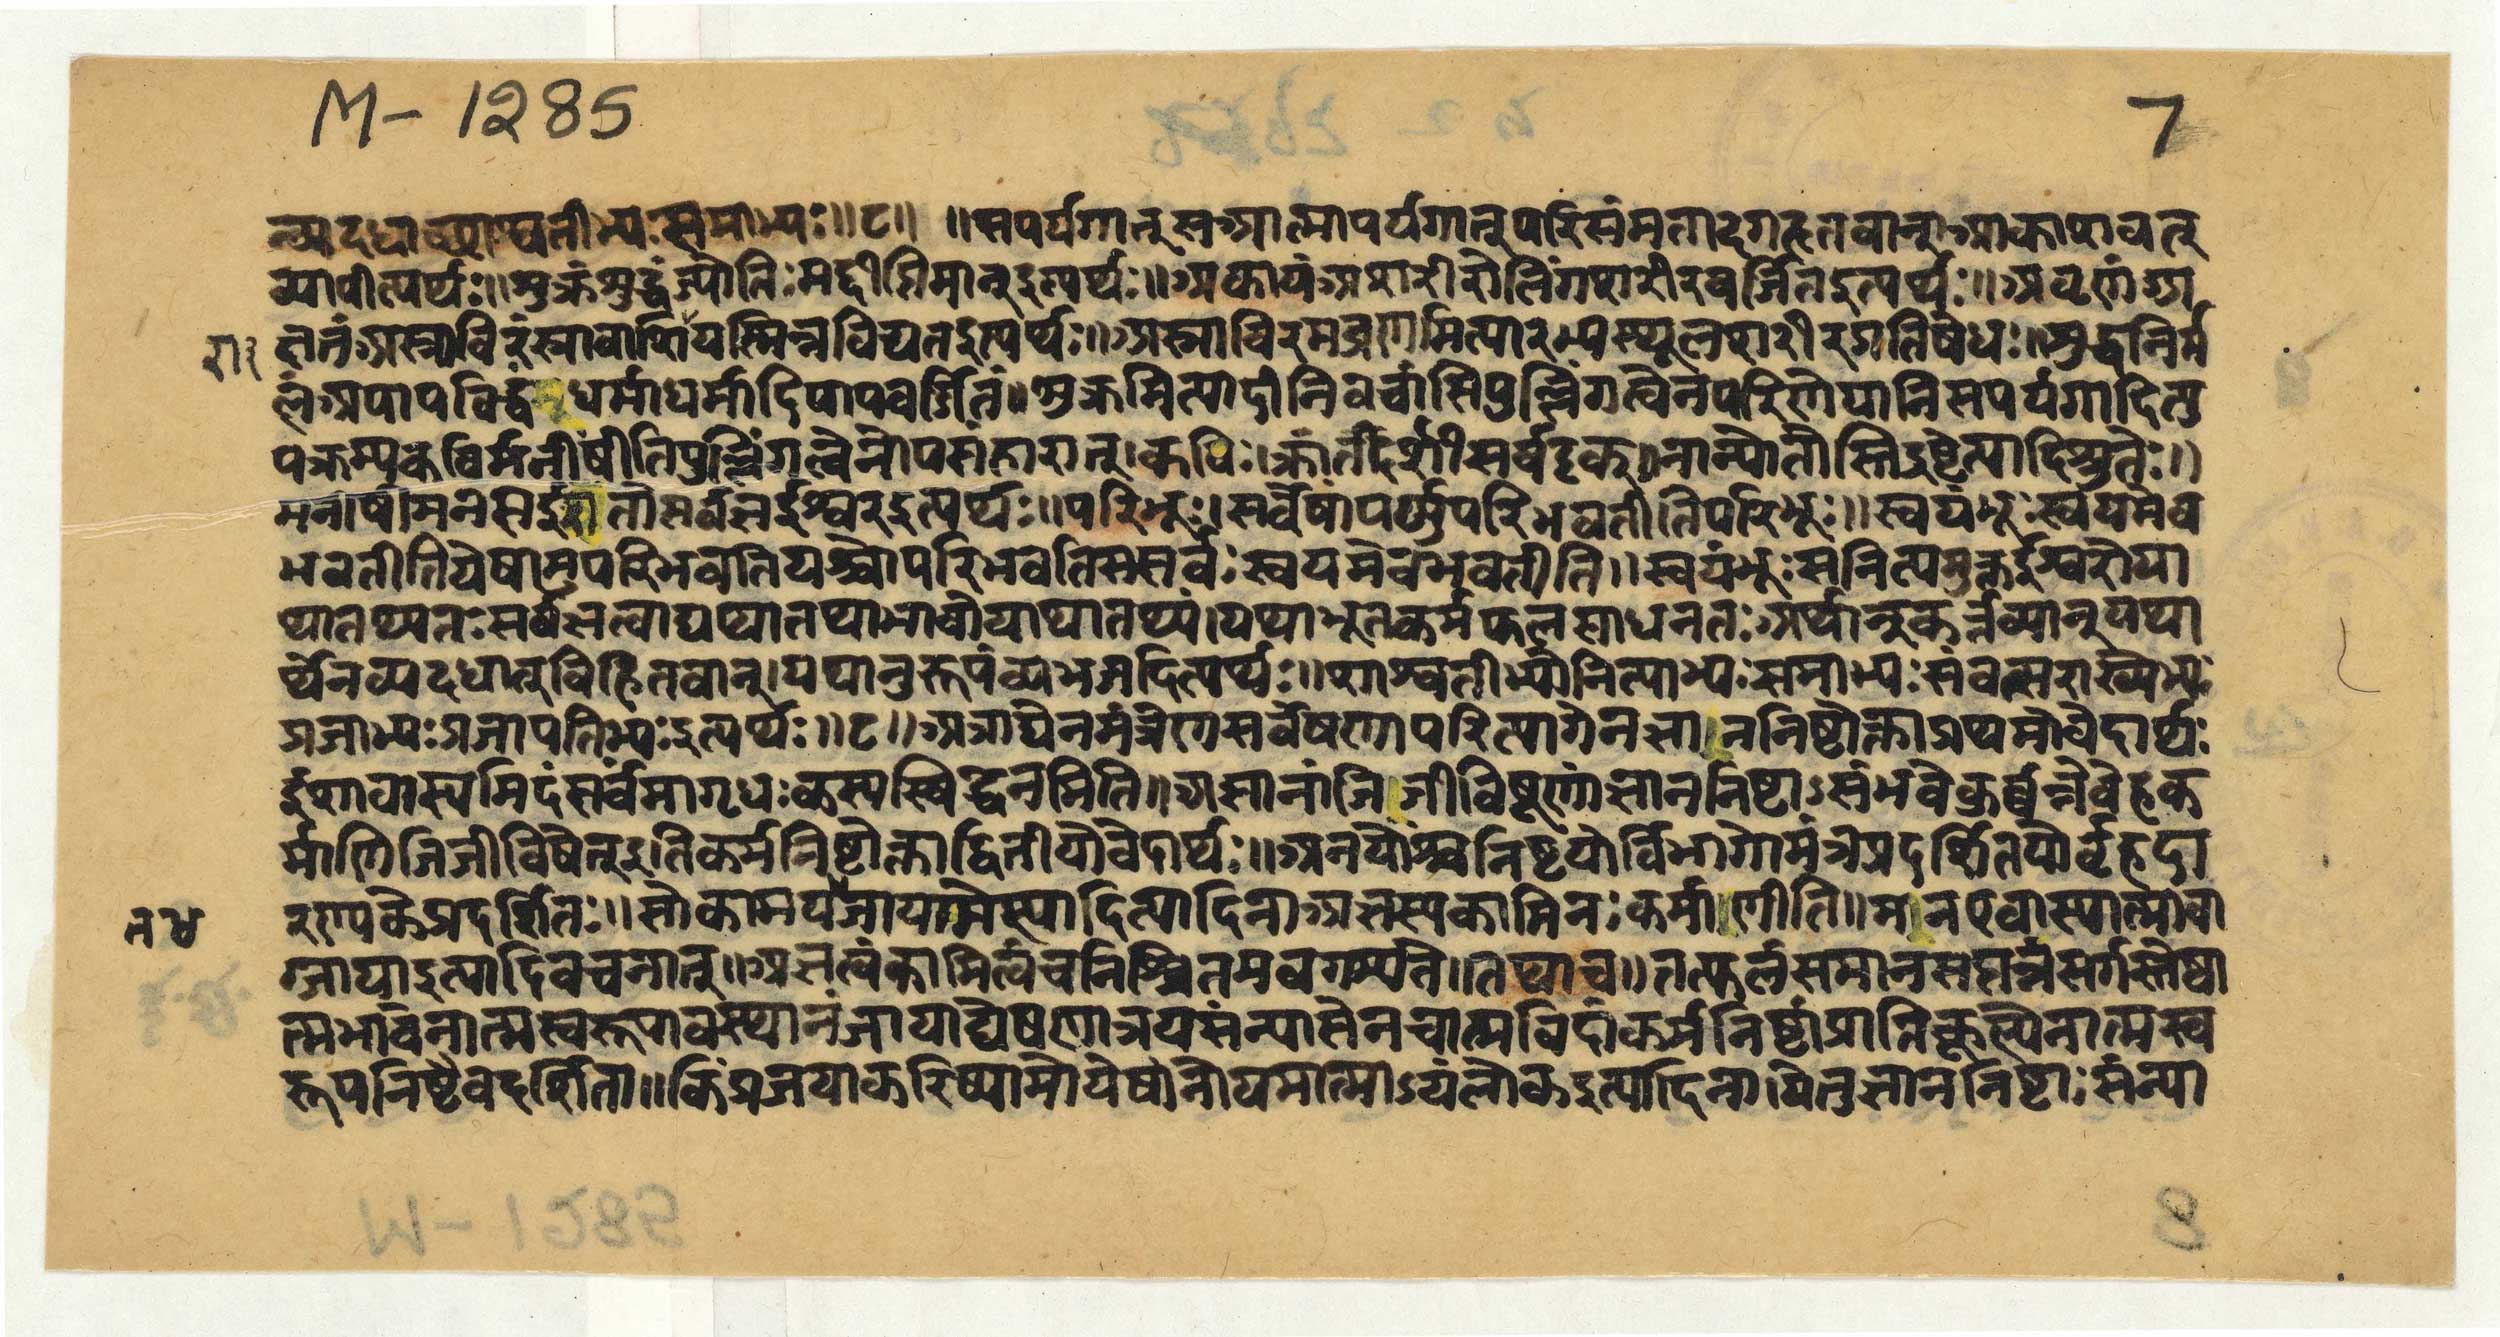 M-1285
7
न्व्यदधाच्छाश्वतीभ्यःसमाभ्यः॥८॥ ॥सपर्यगात्सआत्मापर्यगात्परिसंमतादगद्गतवान्आकाशवत्
व्यापीत्यर्थः॥शुक्रंशुद्धंज्योतिःमद्दीप्तिमान्इत्यर्थः॥अकायंअशरीरोलिंगशरीरवर्जितइत्यर्थः॥अव्रणंअ
क्षतंअस्नाविरंस्नावाशिरायस्मिन्नविद्यतइत्यर्थः॥अस्नाविरमव्रणमित्याभ्यांस्थूलशरीरप्रतिषेधः॥शुद्धंनिर्म
लंअपापविद्धंधर्माधर्मादिपापवर्जितं॥शुक्रमित्यादीनिवचांसिपुल्लिंगत्वेनपरिणेयानिसपर्यगादित्यु
पक्रम्यकविर्मनीषीतिपुल्लिंगत्वेनोपसंहारात्।कविः।क्रांतदर्शीसर्वदृक्॥नान्योतोस्तिद्रष्टेत्यादिश्रुतेः॥
मनीषीमनसईशितासर्वज्ञईश्वरइत्यर्थः॥परिभूः।सर्वेषांपर्युपरिभवतीतिपरिभूः॥स्वयंभूःस्वयमेव
भवतीतियेषामुपरिभवतियश्चोपरिभवतिससर्वःस्वयमेवभवतीति॥स्वयंभूःसनित्यमुक्तईश्वरोया
थातथ्यतःसर्वज्ञत्वाद्यथातथाभावोयाथातथ्यं।यथाभूतकर्मफलसाधनतःअर्थान्कर्तव्यान्यथा
र्थेनव्यदधात्विहितवान्।यथानुरूपंव्यभजदित्यर्थः॥शाश्वतीभ्योनित्याभ्यःसमाभ्यःसंवत्सराख्येभ्यः
प्रजाभ्यःप्रजापतिभ्यःइत्यर्थः॥८॥अत्राद्येनमंत्रेणसर्वेषणापरित्यागेनज्ञाननिष्ठोक्ताप्रथमोवेदार्थः
ईशावास्यमिदंसर्वंमागृधःकस्यस्विद्धनमिति॥अज्ञानांजिजीविषूणांज्ञाननिष्टाऽसंभवेकुर्वन्नेवेहक
र्माणिजिजीविषेत्इतिकर्मनिष्टोक्ताद्वितीयोवेदार्थः॥अनयोश्चनिष्टयोर्विभागोमंत्रेप्रदर्शितयोर्वृहदा
रण्यकेप्रदर्शितः॥सोकामयजायामेस्यादित्यादिनाअज्ञस्यकामिनःकर्माणीति॥मनएवास्यात्मावा
ग्जायाइत्यादिवचनात्॥अज्ञत्वंकामित्वंचनिश्चितमवगम्यते॥तथाच॥तत्फलंसमानसप्तान्नसर्गस्तेष्वा
त्मभावेनात्मस्वरूपावस्थानंजायाद्येषणात्रयसंन्यासेनचात्मविदांकर्मनिष्ठाप्रातिकूल्येनात्मस्व
रूपनिष्टैवदर्शिता॥किंप्रजयाकरिष्यामोयेषांनोयमात्माऽयंलोकइत्यादिना।येतुज्ञाननिष्टाःसंन्या